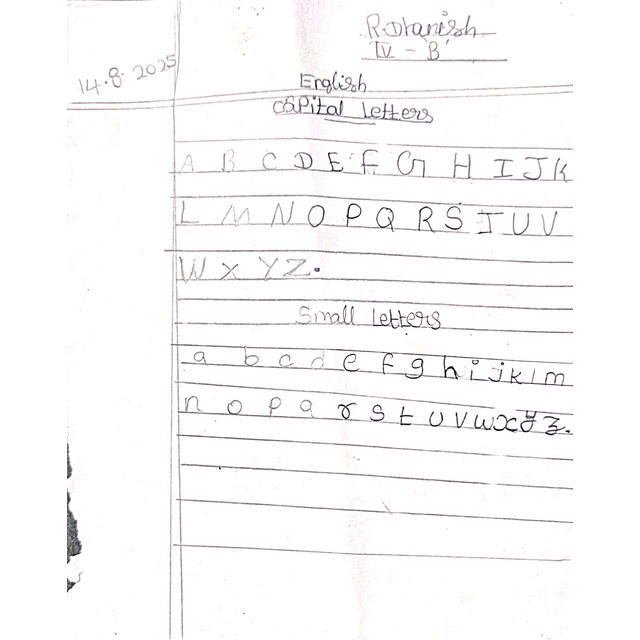 R. Dhanish
IV - B
14.8.2025
English
Capital Letters
A B C D E F G H I J K
L M N O P Q R S T U V
W X Y Z.
Small Letters
a b c d e f g h i j k l m
n o p q r s t u v w x y z.